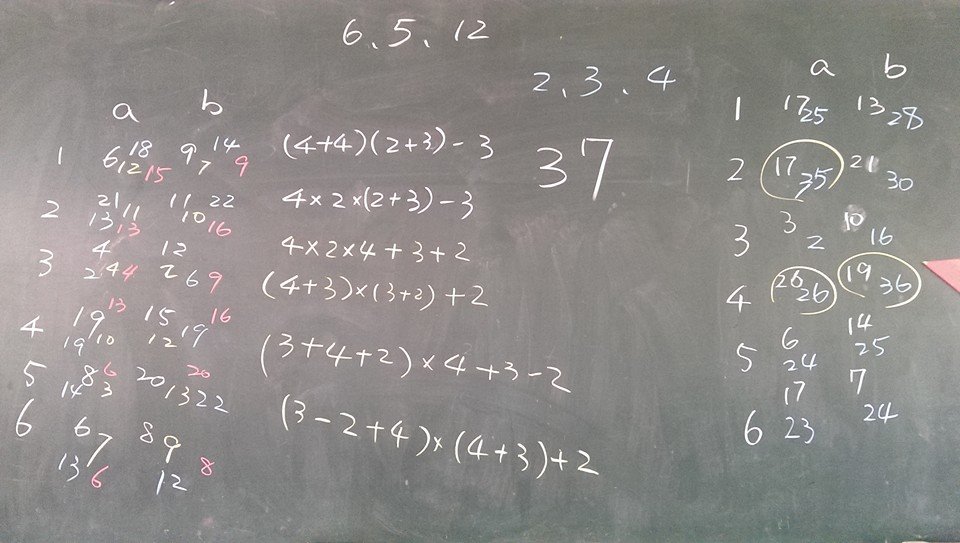 6、5、12
2、3、4
37
a b
1 6 18 12 15 9 14 7 9
2 21 11 13 13 11 22 10 16
3 4 2 4 4 12 2 6 9
4 19 13 19 10 15 16 12 19
5 8 6 14 3 20 20 13 22
6 6 7 13 6 8 9 12 8
(4+4)(2+3)-3
4×2×(2+3)-3
4×2×4+3+2
(4+3)×(3+2)+2
(3+4+2)×4+3-2
(3-2+4)×(4+3)+2
a b
1 17 25 13 28
2 17 35 21 30
3 3 2 10 16
4 26 26 19 36
5 6 24 14 25
6 17 23 7 24